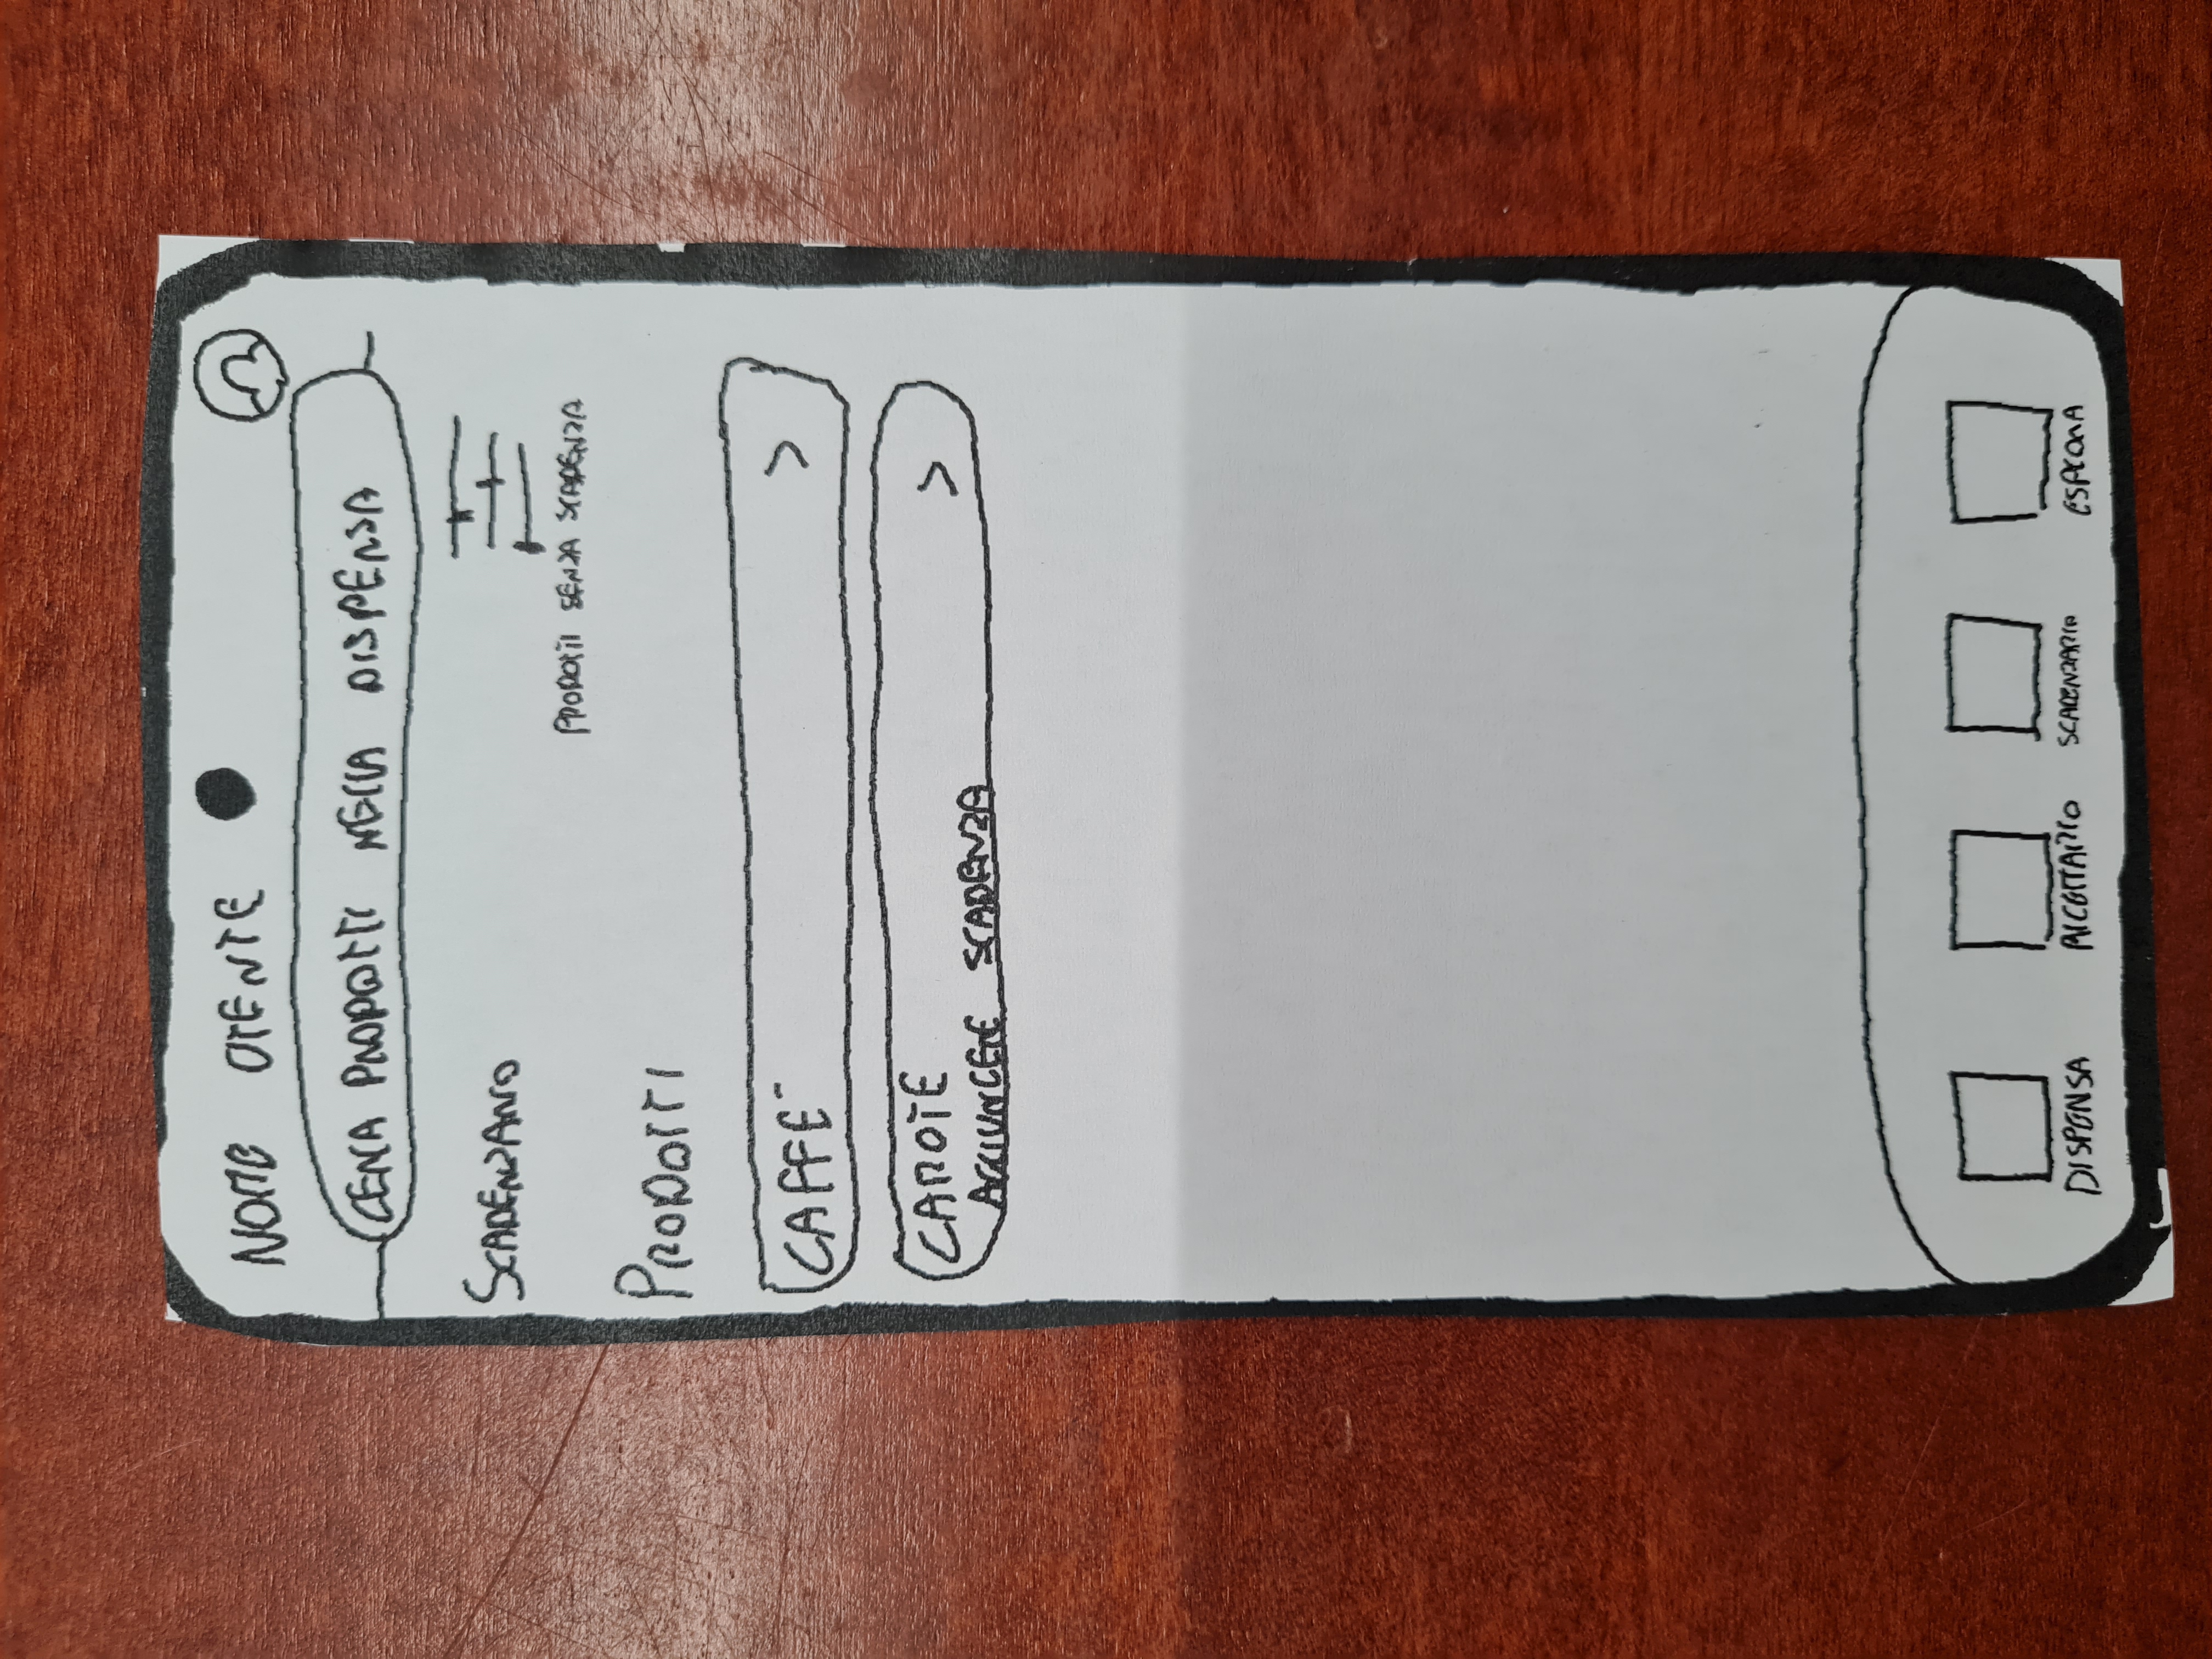 NOME UTENTE
CERCA PRODOTTI NELLA DISPENSA
SCADENZARIO
PRODOTTI SENZA SCADENZA
PRODOTTI
CAFFE'
>
CAROTE
>
AGGIUNGERE SCADENZA
DISPENSA RICETTARIO SCADENZARIO ESPLORA